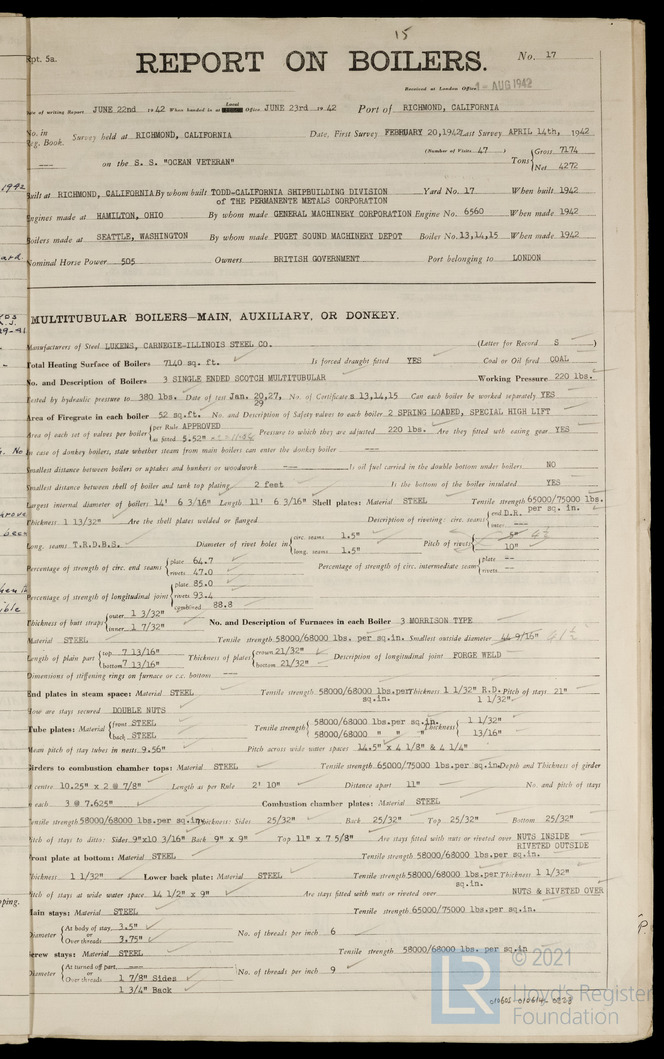 15
Rpt. 5a.
REPORT ON BOILERS.
No. 17
Received at London Office 1-AUG 1942
Date of writing Report JUNE 22nd 1942 When handed in at Local Office JUNE 23rd 1942 Port of RICHMOND, CALIFORNIA
No. in Reg. Book. Survey held at RICHMOND, CALIFORNIA Date, First Survey FEBRUARY 20,1942 Last Survey APRIL 14th, 1942
(Number of Visits 47 )
on the S. S. "OCEAN VETERAN" Tons { Gross 7174 Net 4272
Built at RICHMOND, CALIFORNIA By whom built TODD-CALIFORNIA SHIPBUILDING DIVISION Yard No. 17 When built 1942
of THE PERMANENTE METALS CORPORATION
Engines made at HAMILTON, OHIO By whom made GENERAL MACHINERY CORPORATION Engine No. 6560 When made 1942
Boilers made at SEATTLE, WASHINGTON By whom made PUGET SOUND MACHINERY DEPOT Boiler No. 13,14,15 When made 1942
Nominal Horse Power 505 Owners BRITISH GOVERNMENT Port belonging to LONDON
MULTITUBULAR BOILERS—MAIN, AUXILIARY, OR DONKEY.
Manufacturers of Steel LUKENS, CARNEGIE-ILLINOIS STEEL CO. (Letter for Record S )
Total Heating Surface of Boilers 7140 sq. ft. Is forced draught fitted YES Coal or Oil fired COAL
No. and Description of Boilers 3 SINGLE ENDED SCOTCH MULTITUBULAR Working Pressure 220 lbs.
Tested by hydraulic pressure to 380 lbs. Date of test Jan. 20,27, 29 No. of Certificate s 13,14,15 Can each boiler be worked separately YES
Area of Firegrate in each boiler 52 sq.ft. No. and Description of Safety valves to each boiler 2 SPRING LOADED, SPECIAL HIGH LIFT
Area of each set of valves per boiler { per Rule APPROVED as fitted 5.52" Pressure to which they are adjusted 220 lbs. Are they fitted with easing gear YES
In case of donkey boilers, state whether steam from main boilers can enter the donkey boiler ---
Smallest distance between boilers or uptakes and bunkers or woodwork --- Is oil fuel carried in the double bottom under boilers NO
Smallest distance between shell of boiler and tank top plating 2 feet Is the bottom of the boiler insulated YES
Largest internal diameter of boilers 14' 6 3/16" Length 11' 6 3/16" Shell plates: Material STEEL Tensile strength 65000/75000 lbs. per sq. in.
Thickness 1 13/32" Are the shell plates welded or flanged Description of riveting: circ. seams { end D.R. inter. ---
Long. seams T.R.D.B.S. Diameter of rivet holes in { circ. seams 1.5" long. seams 1.5" Pitch of rivets { 5" 10"
Percentage of strength of circ. end seams { plate 64.7 rivets 47.0 Percentage of strength of circ. intermediate seam { plate -- rivets --
Percentage of strength of longitudinal joint { plate 85.0 rivets 93.4 combined 88.8
Thickness of butt straps { outer 1 3/32" inner 1 7/32" No. and Description of Furnaces in each Boiler 3 MORRISON TYPE
Material STEEL Tensile strength 58000/68000 lbs. per sq.in. Smallest outside diameter 44 9/16" 41½
Length of plain part { top 7 13/16" bottom 7 13/16" Thickness of plates { crown 21/32" bottom 21/32" Description of longitudinal joint FORGE WELD
Dimensions of stiffening rings on furnace or c.c. bottoms ---
End plates in steam space: Material STEEL Tensile strength 58000/68000 lbs.per sq.in. Thickness 1 1/32" R.D. 1 1/32" Pitch of stays 21"
How are stays secured DOUBLE NUTS
Tube plates: Material { front STEEL back STEEL Tensile strength { 58000/68000 lbs.per sq.in. 58000/68000 " " " Thickness { 1 1/32" 13/16"
Mean pitch of stay tubes in nests 9.56" Pitch across wide water spaces 14.5" x 4 1/8" & 4 1/4"
Girders to combustion chamber tops: Material STEEL Tensile strength 65000/75000 lbs.per sq.in. Depth and Thickness of girder
at centre 10.25" x 2 @ 7/8" Length as per Rule 2' 10" Distance apart 11" No. and pitch of stays
in each 3 @ 7.625" Combustion chamber plates: Material STEEL
Tensile strength 58000/68000 lbs.per sq.in. Thickness: Sides 25/32" Back 25/32" Top 25/32" Bottom 25/32"
Pitch of stays to ditto: Sides 9"x10 3/16" Back 9" x 9" Top 11" x 7 5/8" Are stays fitted with nuts or riveted over NUTS INSIDE
RIVETED OUTSIDE
Front plate at bottom: Material STEEL Tensile strength 58000/68000 lbs.per sq.in.
Thickness 1 1/32" Lower back plate: Material STEEL Tensile strength 58000/68000 lbs.per sq.in. Thickness 1 1/32"
Pitch of stays at wide water space 14 1/2" x 9" Are stays fitted with nuts or riveted over NUTS & RIVETED OVER
Main stays: Material STEEL Tensile strength 65000/75000 lbs.per sq.in.
Diameter { At body of stay 3.5" or Over threads 3.75" No. of threads per inch 6
Screw stays: Material STEEL Tensile strength 58000/68000 lbs. per sq.in
Diameter { At turned off part --- or Over threads 1 7/8" Sides No. of threads per inch 9
1 3/4" Back
© 2021
LR Lloyd's Register
Foundation